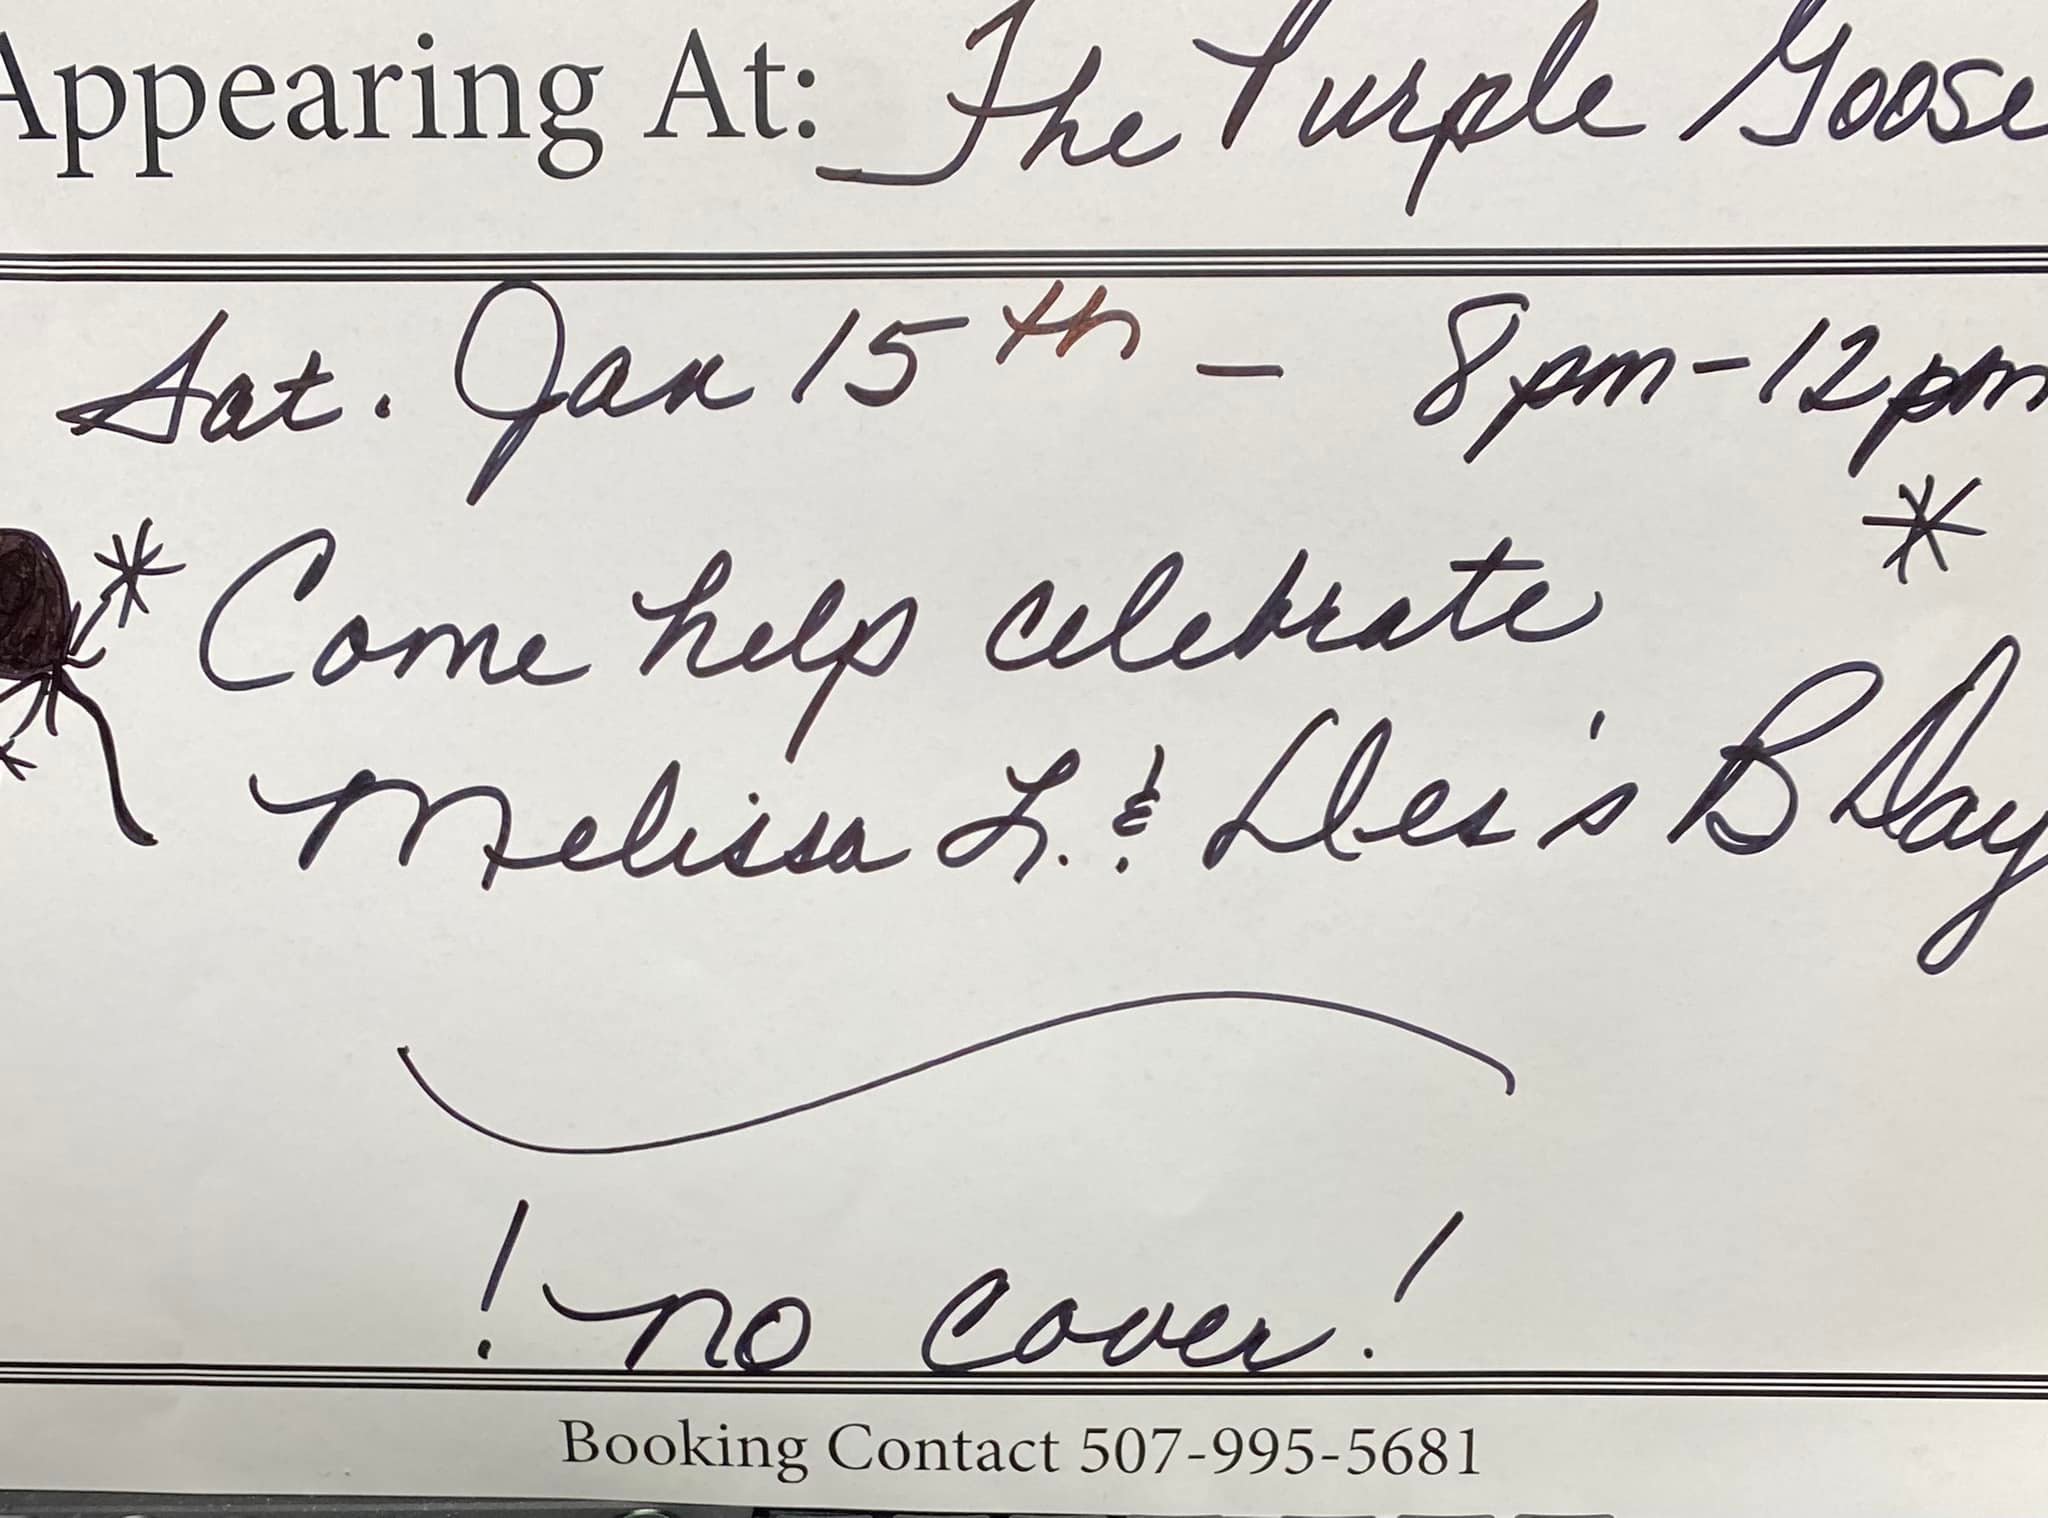 Appearing At: The Purple Goose
Sat. Jan 15th - 8pm-12pm
* Come help celebrate *
Melissa L. & Des's B Day
! no cover!
Booking Contact 507-995-5681